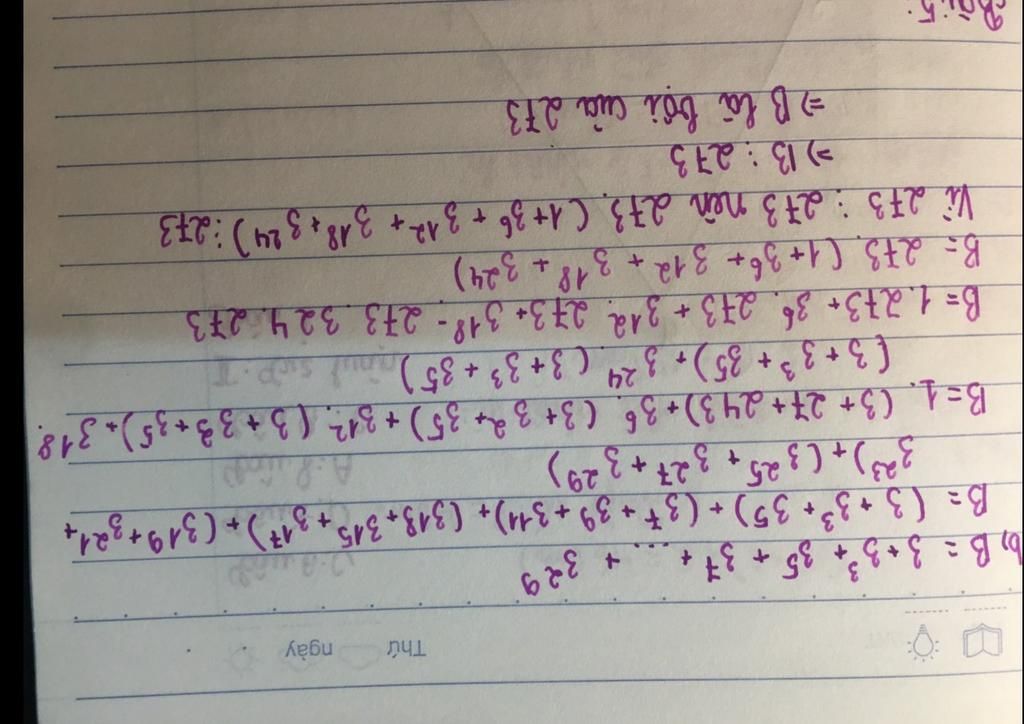 Thứ ngày
b, B = 3 + 3³ + 3⁵ + 3⁷ + ... + 3²⁹
B = (3 + 3³ + 3⁵) + (3⁷ + 3⁹ + 3¹¹) + (3¹³ + 3¹⁵ + 3¹⁷) + (3¹⁹ + 3²¹ +
3²³) + (3²⁵ + 3²⁷ + 3²⁹)
B = 1. (3 + 27 + 243) + 3⁶. (3 + 3² + 3⁵) + 3¹². (3 + 3³ + 3⁵) + 3¹⁸.
(3 + 3³ + 3⁵) + 3²⁴. (3 + 3³ + 3⁵)
B = 1. 273 + 3⁶. 273 + 3¹². 273 + 3¹⁸ - 273. 324. 273
B = 273. (1 + 3⁶ + 3¹² + 3¹⁸ + 3²⁴)
Vì 273 ⋮ 273 nên 273. (1 + 3⁶ + 3¹² + 3¹⁸ + 3²⁴) ⋮ 273
⇒ B ⋮ 273
⇒ B là bội của 273
Bài 5: